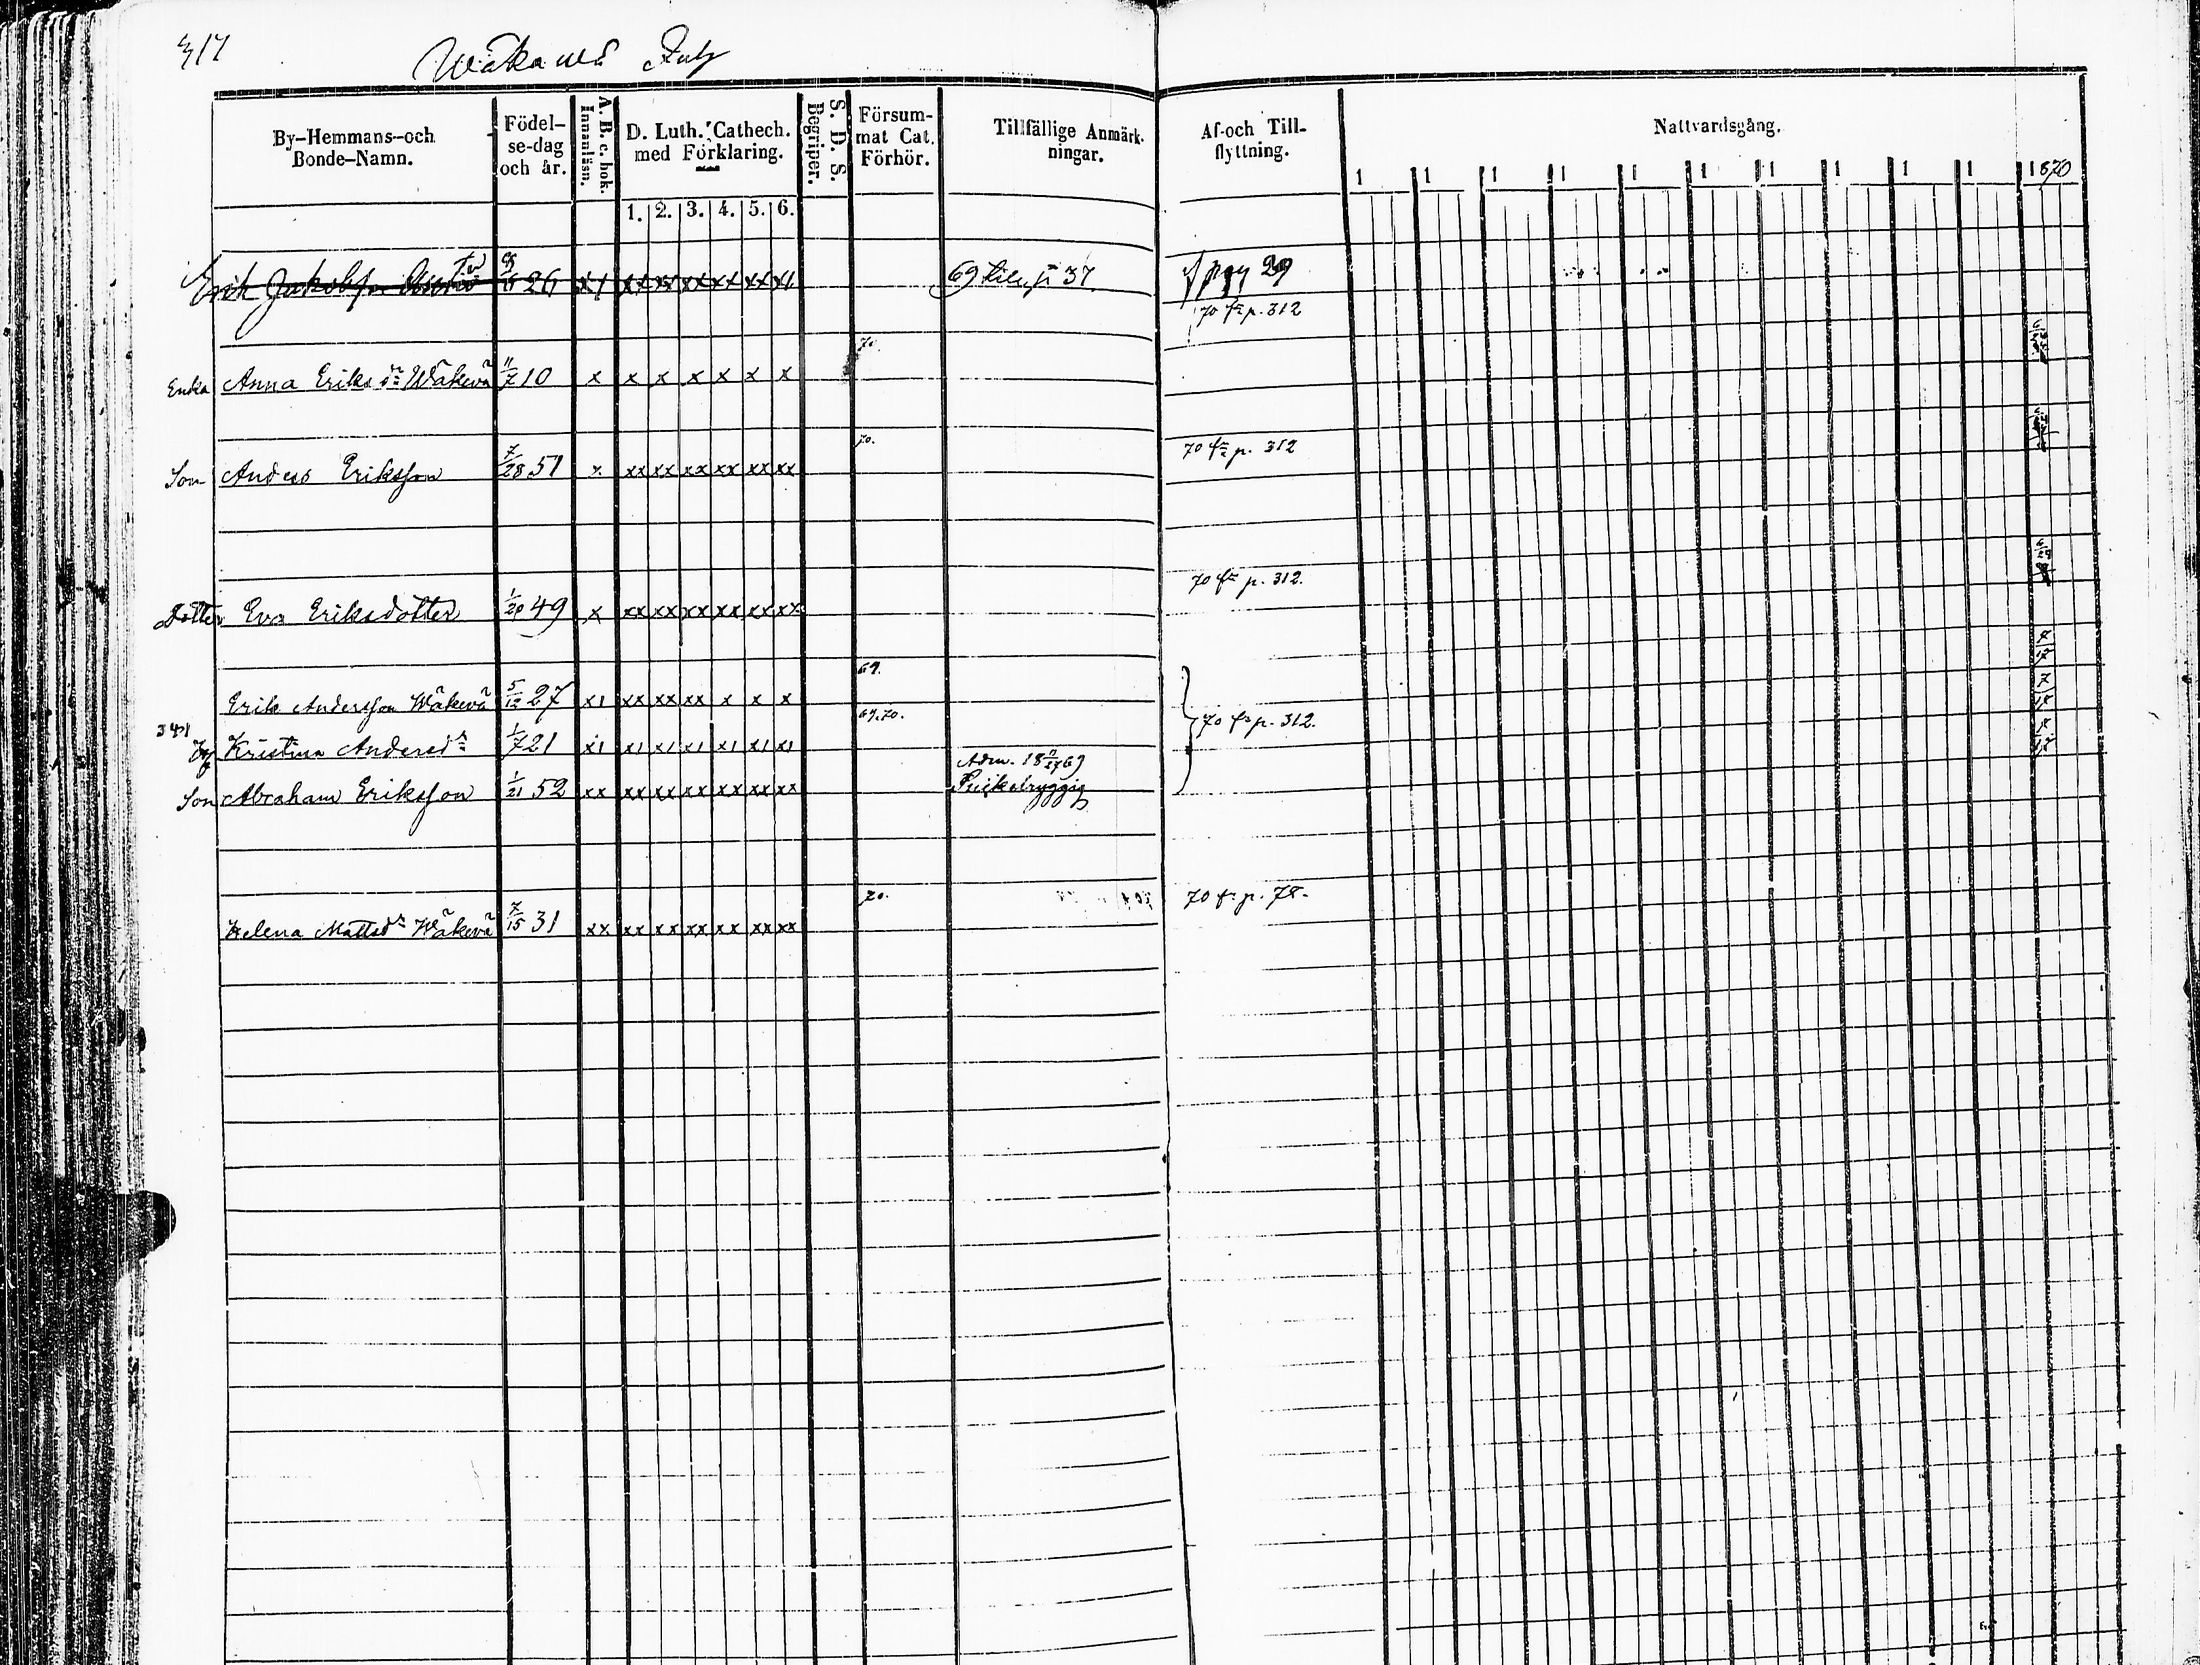 317
By-Hemmans-och Bonde-Namn.
Födel-se-dag och år.
A. B. c. bok. Innanläsn.
D. Luth. Cathech. med Förklaring.
1. 2. 3. 4. 5. 6.
S. D. S. Begriper.
Försum-mat Cat. Förhör.
Tillfällige Anmärk-ningar.
Af-och Till-flyttning.
Nattvardsgång.
1 1 1 1 1 1 1 1 1 1 1870
Erik Jakobsson 26 x1 xx xx xx xx xx x1 69 37. pag 29
70 fr p. 312
70.
Enka Anna Eriks dr Wäkevä 11/7 10 x x x x x x x
70. 70 fr p. 312
Son Anders Eriksson 7/28 51 x xx xx xx xx xx xx
70 fr p. 312. 6/29
Dotter Eva Eriksdotter 1/20 49 x xx xx xx xx xx xx
69. 7/17
Erik Andersson Wäkevä 5/12 27 x1 xx xx xx x x x 7/17
341 69.70. 70 fr p. 312. 7/17
Kristina Andersdr 1/7 21 x1 x1 x1 x1 x1 x1 x1
Adm. 18 11/27 69
Son Abraham Eriksson 1/21 52 xx xx xx xx xx xx xx
70. 70 fr p. 78.
Helena Mattsdr Wäkevä 7/15 31 xx xx xx xx xx xx xx